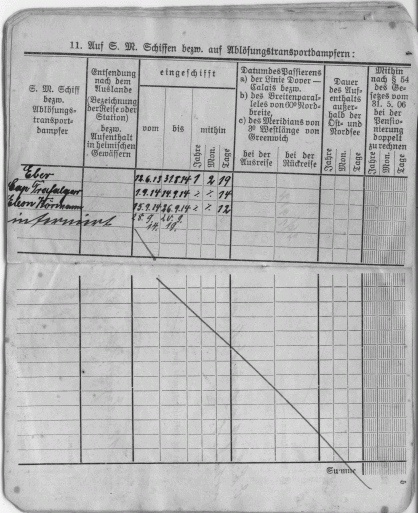 11. Auf S. M. Schiffen bezw. auf Ablösungstransportdampfern:
S. M. Schiff
bezw.
Ablösungs-
transport-
dampfer
Entsendung
nach dem
Auslande
(Bezeichnung
der Reise oder
Station)
bezw.
Aufenthalt
in heimischen
Gewässern
eingeschifft
vom
bis
mithin
Jahre
Mon.
Tage
Datum des Passierens
a) der Linie Dover —
Calais bezw.
b) des Breitenparal-
leles von 60° Nord-
breite,
c) des Meridians von
3° Westlänge von
Greenwich
bei der
Ausreise
bei der
Rückreise
Dauer
des Auf-
enthalts
außer-
halb der
Ost- und
Nordsee
Jahre
Mon.
Tage
Mithin
nach § 54
des Ge-
setzes vom
31. 5. 06
bei der
Pensio-
nierung
doppelt
zu rechnen
Jahre
Mon.
Tage
Eber 12.6.13 31.8.14 1 2 19
Cap Trafalgar 1.9.14 14.9.14 14
Eleon Wörmann 15.9.14 26.9.14 12
interniert
Summe